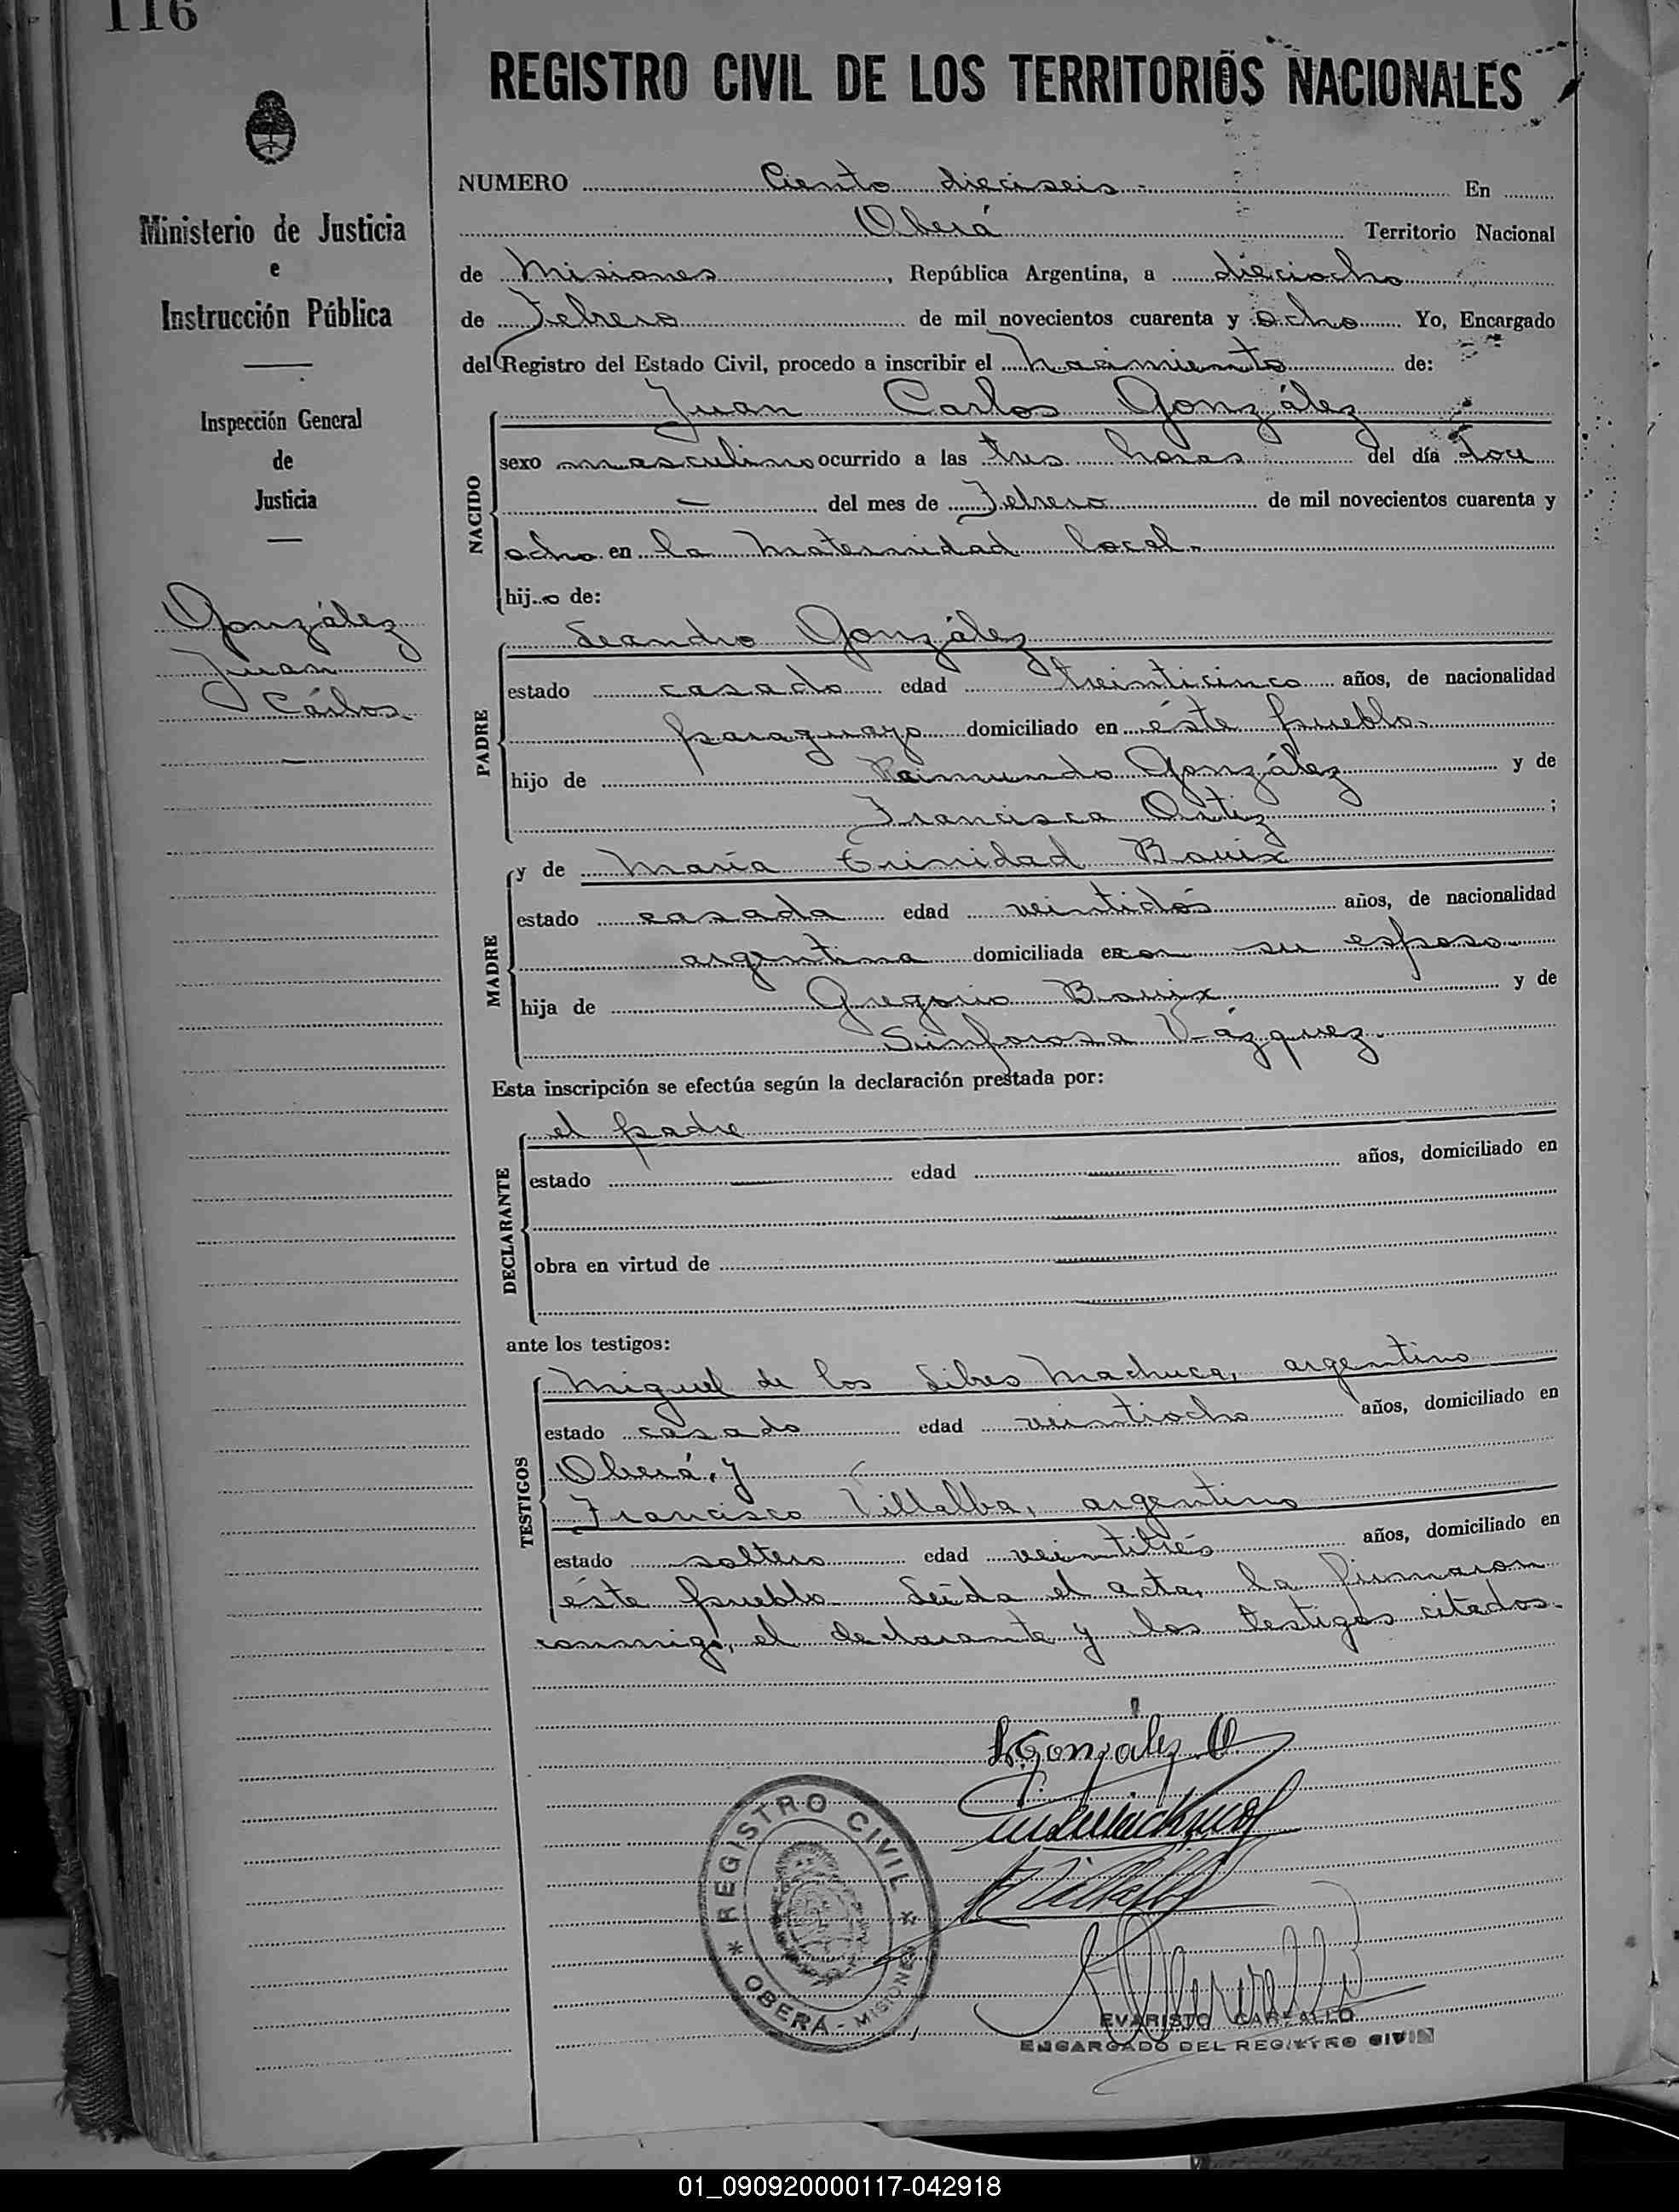 116
REGISTRO CIVIL DE LOS TERRITORIOS NACIONALES
Ministerio de Justicia
e
Instrucción Pública
Inspección General
de
Justicia
González
Juan
Cárlos
NUMERO Ciento dieciseis - En
Oberá Territorio Nacional
de Misiones, República Argentina, a dieciocho
de Febrero de mil novecientos cuarenta y ocho Yo, Encargado
del Registro del Estado Civil, procedo a inscribir el nacimiento de:
NACIDO
Juan Carlos González
sexo masculino ocurrido a las tres horas del día doce
— del mes de Febrero de mil novecientos cuarenta y
ocho en la Maternidad local.-
hijo de:
PADRE
Leandro González
estado casado edad treinticinco años, de nacionalidad
paraguayo domiciliado en éste pueblo.
hijo de Raimundo González y de
Francisca Ortiz ;
MADRE
y de María Trinidad
estado casada edad veintidós años, de nacionalidad
argentina domiciliada con su esposo
hija de Gregorio y de
Sinforosa Vázquez.
Esta inscripción se efectúa según la declaración prestada por:
DECLARANTE
el padre
estado — edad — años, domiciliado en
obra en virtud de
ante los testigos:
TESTIGOS
Miguel de los Libres Machuca, argentino
estado casado edad veintiocho años, domiciliado en
Oberá, y
Francisco Villalba, argentino
estado soltero edad veintitrés años, domiciliado en
éste pueblo. Leída el acta, la firmaron
conmigo, el declarante y los testigos citados.
L. González O.
REGISTRO CIVIL
OBERÁ - MISIONES
EVARISTO CARVALLO
ENCARGADO DEL REGISTRO CIVIL
01_090920000117-042918